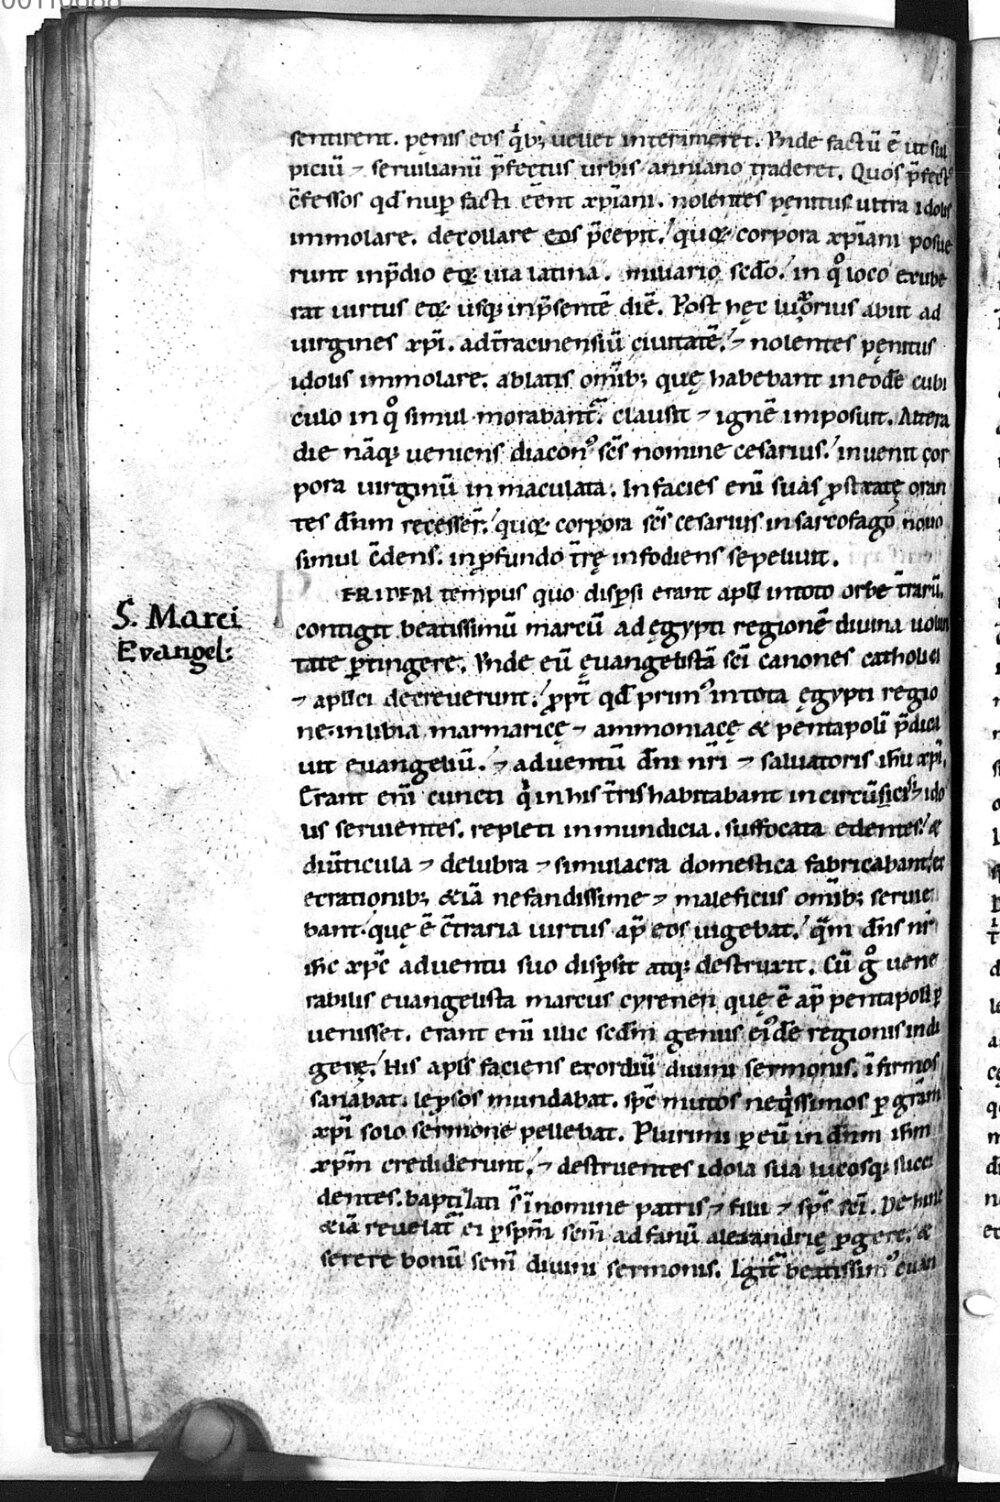 sentirent. pęnis eos q̊b; uellet interimeret. Vnde factū ē ut sul
piciū ⁊ seruilianū p̄fectus urbis anniano traderet. Quos p̄fect᷒
c̄fessos qd nup̱ facti ēent xp̄iani. nolentes pęnitus ultra idolis
immolare. decollare eos p̄cepit. quoꝝ corpora xp̄iani posue
runt inp̄dio eoꝝ uia latina. miliario sc̄do. in q̊ loco exube
rat uirtus eoꝝ usq; inp̄sentē diē. Post hęc luxorius abiit ad
virgines xp̄i. ad tracinensiū ciuitatē. ⁊ nolentes pęnitus
idolis immolare. ablatis om̄ib; quę habebant in eodē cubi
culo in q̊ simul morabant᷑. clausit ⁊ ignē imposuit. Altera
die nāq; ueniens diacon᷒ sc̄s nomine cesarius. inuenit cor
pora uirginū inmaculata. In facies eni suas p̱stratę oran
tes dn̄m recesser̄. quoꝝ corpora sc̄s cesarius in sarcofago nouo
simul c̄dens. in p̱fundo t̄rę infodiens sepeliuit.
P ER IDEM tempus quo disp̱si erant apl̄i in toto orbe t̄rarū.
S. Marci
Evangel:
contigit beatissimū marcū ad ęgypti regionē diuina uolun
tate p̱tingere. Vnde eū ęuangelistā sc̄i canones catholici
⁊ apl̄ici decreuerunt. p̱pt̄ qd prim᷒ in tota ęgypti regio
ne. in libia marmaricę ⁊ ammoniacę & pentapoli p̄dica
uit euangeliū. ⁊ aduentū dn̄i nr̄i ⁊ saluatoris ih̄u xp̄i.
Erant eni cuncti q̊ in his t̄ris habitabant incircūcisi ⁊ ido
lis seruientes. repleti inmundicia. suffocata edentes. &
diuticula ⁊ delubra ⁊ simulacra domestica fabricabant. ex
ecrationib; &iā nefandissime ⁊ maleficiis om̄ib; seruie
bant. quę ē c̄traria uirtus ap̱ eos uigebat. q̄m dn̄s nr̄
ih̄c xp̄c aduentu suo disp̱sit atq; destruxit. Cū g̊ uene
rabilis euangelista marcus cyrenen quę ē ap̱ pentapoli p̱
uenisset. erant eni illic sc̄dm genus ei᷒dē regionis indi
genę. His apl̄s faciens exordiū diuini sermonis. ifirmos
sanabat. lep̱sos mundabat. sp̄c multos neq̊ssimos p̱ gr̄am
xp̄i solo sermone pellebat. Plurimi p̱ eū in dn̄m ih̄m
xp̄m crediderunt. ⁊ destruentes idola sua lucosq; succi
dentes. baptizati s̄ in nomine patris ⁊ filii ⁊ sp̄s sc̄i. De hinc
&iā reuelat᷑ ei p̱ sp̄m sc̄m ad fanū alexandrię p̱gere. &
serere bonū sem̄ diuini sermonis. Igit᷑ beatissim᷒ euan